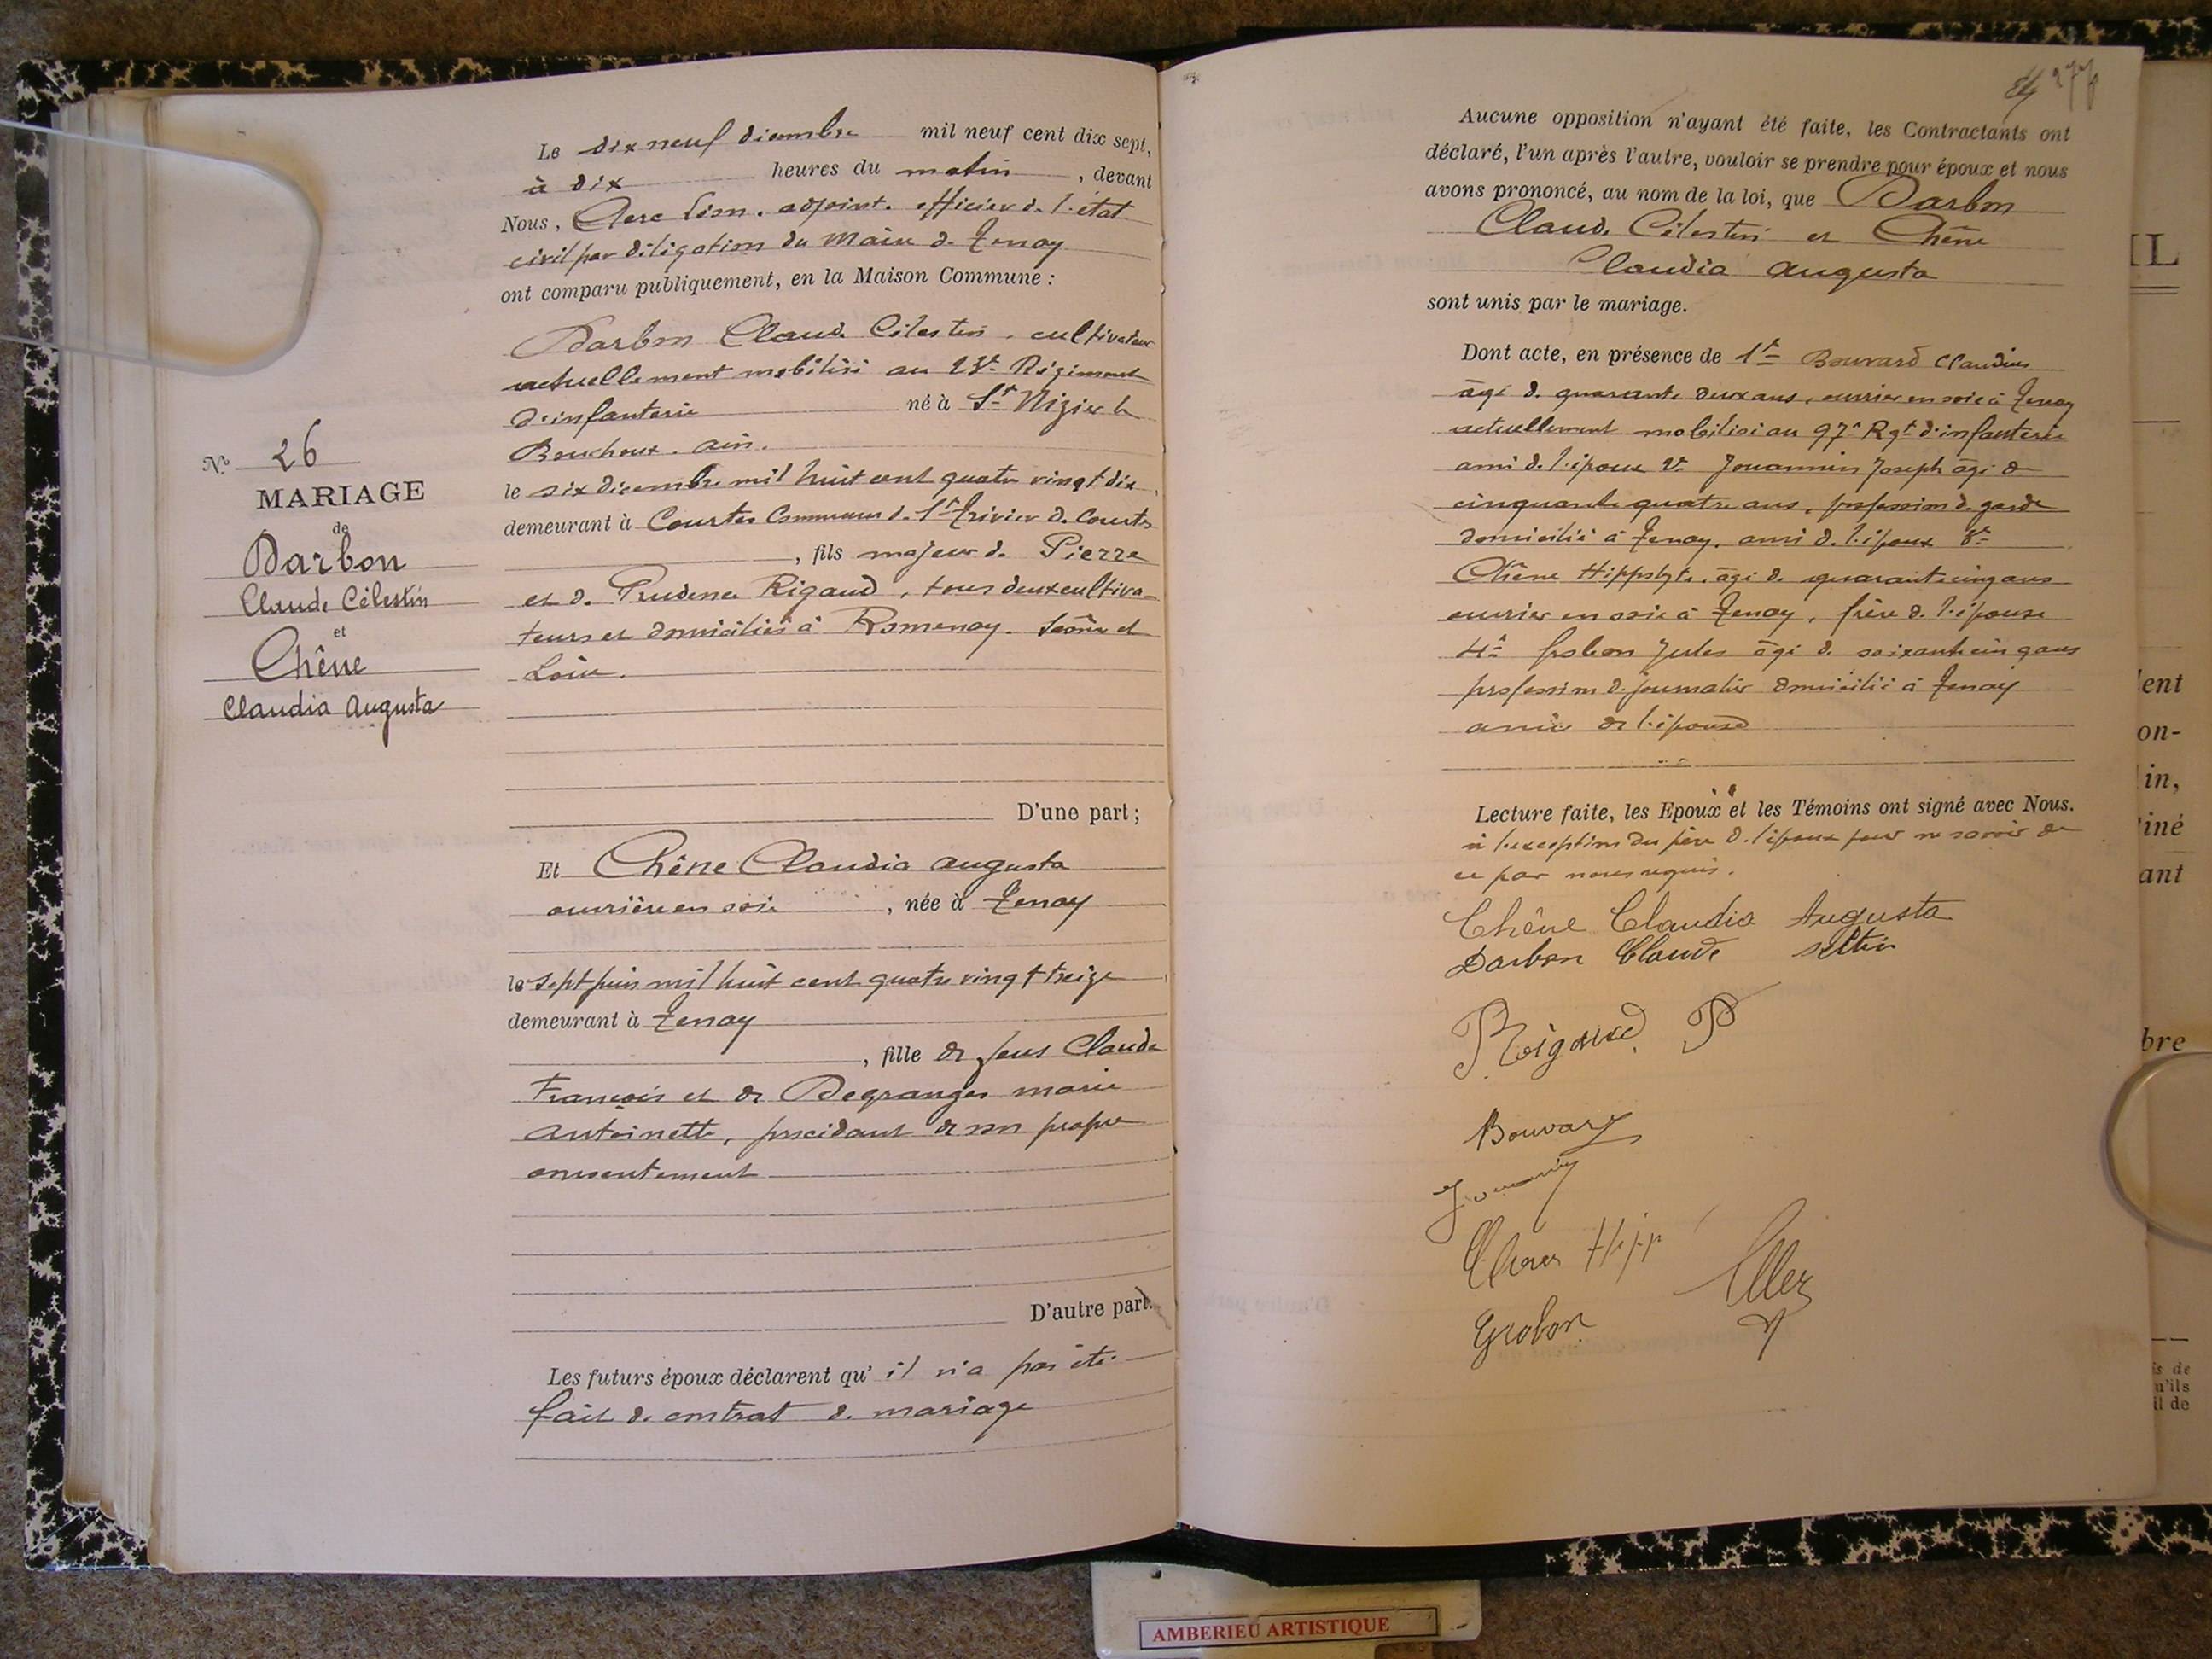 N° 26
MARIAGE
de
Darbon
Claude Célestin
et
Chêne
Claudia Augusta
Le dix neuf décembre mil neuf cent dix sept,
à dix heures du matin, devant
Nous, Clerc Léon. adjoint. officier de l'état
civil par délégation du Maire de Tenay
ont comparu publiquement, en la Maison Commune :
Darbon Claude Célestin, cultivateur
actuellement mobilisé au 23e Régiment
d'infanterie né à St Nizier le
Bouchoux. Ain.
le six décembre mil huit cent quatre vingt dix
demeurant à Courtes Commune de St Trivier de Courtes
, fils majeur de Pierre
et de Prudence Rigaud, tous deux cultiva-
teurs et domiciliés à Romenay. Saône et
Loire.
D'une part ;
Et Chêne Claudia Augusta
ouvrière en soie, née à Tenay
le sept juin mil huit cent quatre vingt treize
demeurant à Tenay
, fille de feus Claude
François et de Degranges Marie
Antoinette, procédant de son propre
consentement
D'autre part.
Les futurs époux déclarent qu'il n'a pas été
fait de contrat de mariage
277
Aucune opposition n'ayant été faite, les Contractants ont
déclaré, l'un après l'autre, vouloir se prendre pour époux et nous
avons prononcé, au nom de la loi, que Darbon
Claude Célestin et Chêne
Claudia Augusta
sont unis par le mariage.
Dont acte, en présence de 1er Bouvard Claudius
âgé de quarante deux ans, ouvrier en soie à Tenay
actuellement mobilisé au 97e Rgt d'infanterie
ami de l'époux 2e Jouannin Joseph âgé de
cinquante quatre ans, profession de garde
domicilié à Tenay, ami de l'époux 3e
Chêne Hippolyte, âgé de quarante cinq ans
ouvrier en soie à Tenay, frère de l'épouse
4e Grobon Jules âgé de soixante cinq ans
profession de journalier domicilié à Tenay
ami de l'épouse
Lecture faite, les Epoux et les Témoins ont signé avec Nous.
à l'exception du père de l'époux pour ne savoir de
ce par nous requis.
Chêne Claudia Augusta
Darbon Claude
Roigaud P
Bouvard
Chêne Hipp
Grobon
AMBERIEU ARTISTIQUE
IL
ent
on-
in,
iné
ant
bre
is de
u'ils
il de